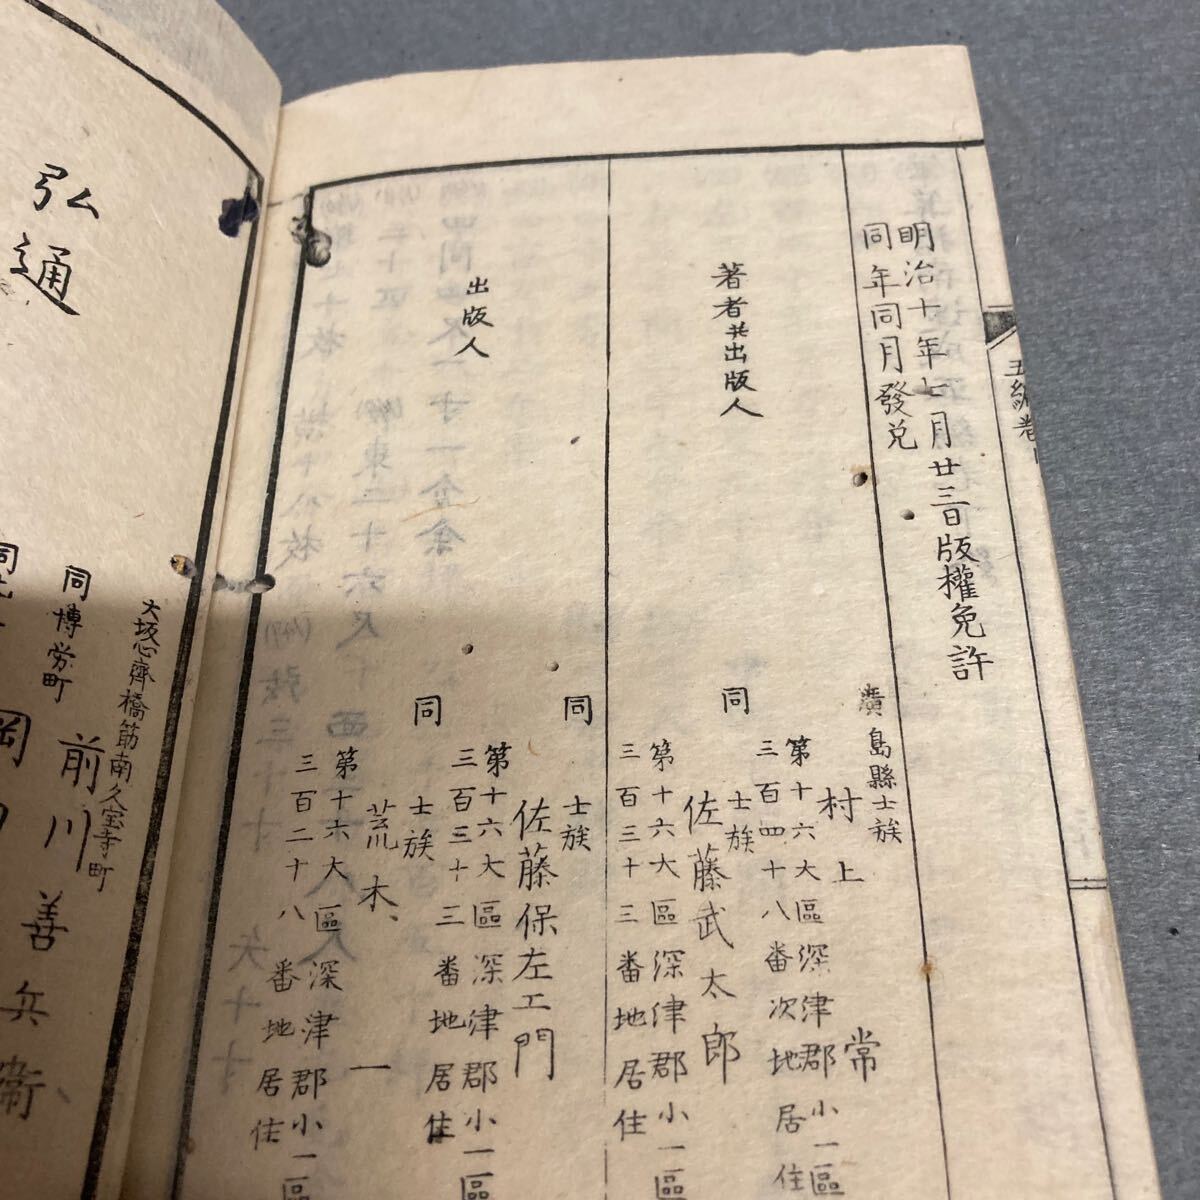 五編巻
明治十年七月廿三日版權免許
同年同月發兌
著者共出版人
廣島縣士族
村上常
第十六大區深津郡小一區
三百四十八番次地居住
同士族
佐藤武太郎
第十六大區深津郡小一區
三百三十三番地居住
出版人
同士族
佐藤保左エ門
第十六大區深津郡小一區
三百三十三番地居住
同士族
荒木一
第十六大區深津郡小一區
三百二十八番地居住
弘通
大坂心齊橋筋南久宝寺町
前川善兵衛
同博労町
岡